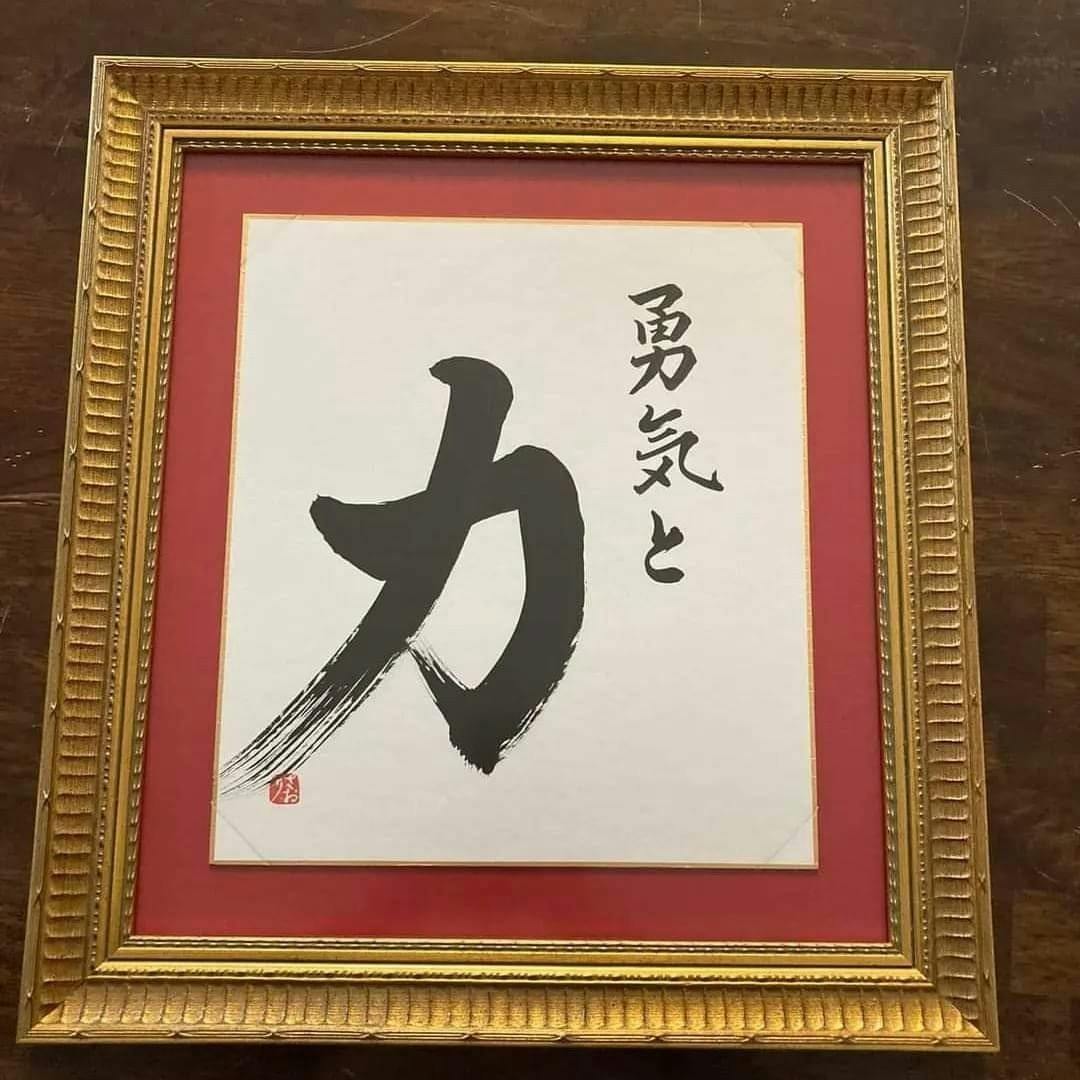 勇気と
力